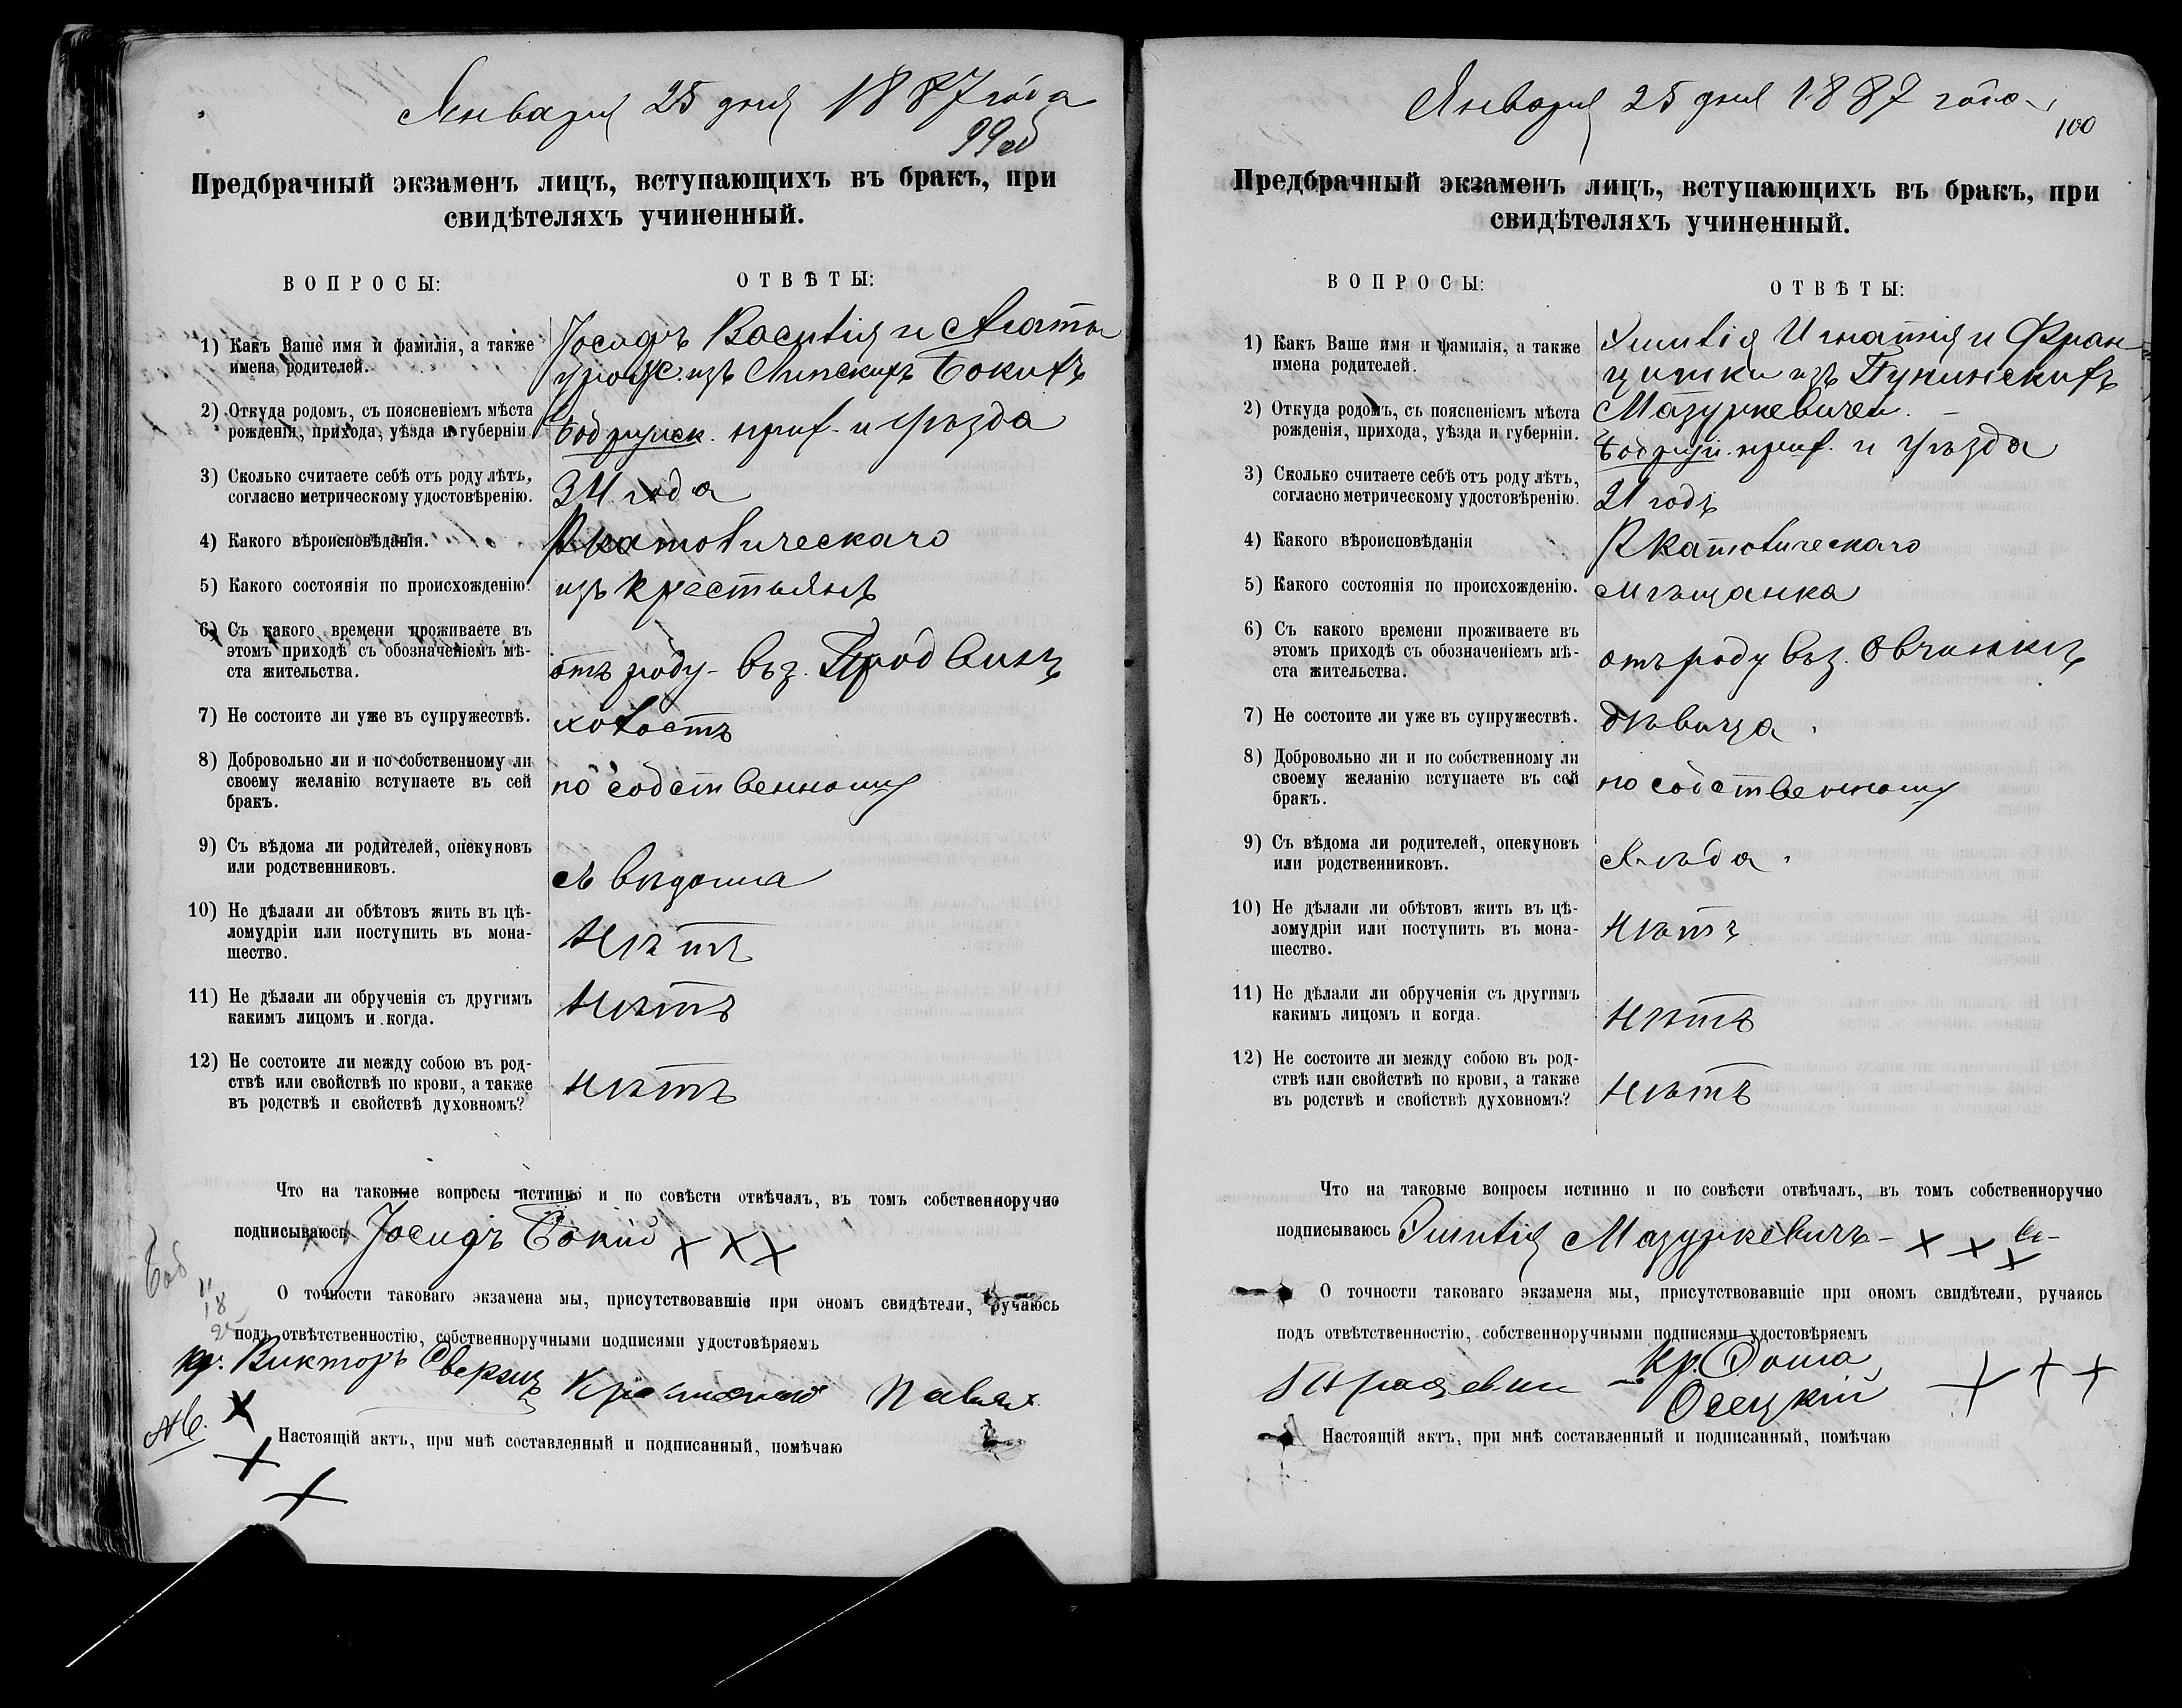 Января 25 дня 1887 года
99 об
Предбрачный экзаменъ лицъ, вступающихъ въ бракъ, при
свидѣтеляхъ учиненный.
ВОПРОСЫ:
ОТВѢТЫ:
1) Какъ Ваше имя и фамилія, а также
имена родителей.
Іосифъ Василія и Агаты
урожд. изъ Липскихъ Бокихъ
2) Откуда родомъ, съ поясненіемъ мѣста
рожденія, прихода, уѣзда и губерніи.
Бобруйск. прих. и уѣзда
3) Сколько считаете себѣ отъ роду лѣтъ,
согласно метрическому удостовѣренію.
24 года
4) Какого вѣроисповѣданія.
Р Католическаго
5) Какого состоянія по происхожденію.
изъ крестьянъ
6) Съ какого времени проживаете въ
этомъ приходѣ съ обозначеніемъ мѣ-
ста жительства.
отъ роду въ з.
7) Не состоите ли уже въ супружествѣ.
холостъ
8) Добровольно ли и по собственному ли
своему желанію вступаете въ сей
бракъ.
по собственному
9) Съ вѣдома ли родителей, опекуновъ
или родственниковъ.
съ вѣдома
10) Не дѣлали ли обѣтовъ жить въ цѣ-
ломудріи или поступить въ мона-
шество.
Нѣтъ
11) Не дѣлали ли обрученія съ другимъ
какимъ лицомъ и когда.
Нѣтъ
12) Не состоите ли между собою въ род-
ствѣ или свойствѣ по крови, а также
въ родствѣ и свойствѣ духовномъ?
Нѣтъ
Что на таковые вопросы истинно и по совѣсти отвѣчалъ, въ томъ собственноручно
подписываюсь Іосифъ Бокій ХХХ
Боб
11
18
25
О точности таковаго экзамена мы, присутствовавшіе при ономъ свидѣтели, ручаюсь
подъ отвѣтственностію, собственноручными подписями удостовѣряемъ
кр. Викторъ
Х
Х
Х
Настоящій актъ, при мнѣ составленный и подписанный, помѣчаю
Января 25 дня 1887 года
100
Предбрачный экзаменъ лицъ, вступающихъ въ бракъ, при
свидѣтеляхъ учиненный.
ВОПРОСЫ:
ОТВѢТЫ:
1) Какъ Ваше имя и фамилія, а также
имена родителей.
Эмилія Игнатія и Фран-
цишки изъ
Мазуркевичей.
2) Откуда родомъ, съ поясненіемъ мѣста
рожденія, прихода, уѣзда и губерніи.
Бобруй. прих. и уѣзда
3) Сколько считаете себѣ отъ роду лѣтъ,
согласно метрическому удостовѣренію.
21 годъ
4) Какого вѣроисповѣданія
Р Католическаго
5) Какого состоянія по происхожденію.
мѣщанка
6) Съ какого времени проживаете въ
этомъ приходѣ съ обозначеніемъ мѣ-
ста жительства.
отъ роду въ з. Овчинкѣ
7) Не состоите ли уже въ супружествѣ.
дѣвица.
8) Добровольно ли и по собственному ли
своему желанію вступаете въ сей
бракъ.
по собственному
9) Съ вѣдома ли родителей, опекуновъ
или родственниковъ.
10) Не дѣлали ли обѣтовъ жить въ цѣ-
ломудріи или поступить въ мона-
шество.
Нѣтъ
11) Не дѣлали ли обрученія съ другимъ
какимъ лицомъ и когда.
Нѣтъ
12) Не состоите ли между собою въ род-
ствѣ или свойствѣ по крови, а также
въ родствѣ и свойствѣ духовномъ?
Нѣтъ
Что на таковые вопросы истинно и по совѣсти отвѣчалъ, въ томъ собственноручно
подписываюсь Эмилія Мазуркевичъ - Х Х Х
О точности таковаго экзамена мы, присутствовавшіе при ономъ свидѣтели, ручаясь
подъ отвѣтственностію, собственноручными подписями удостовѣряемъ
Кр. Фома
Осецкій Х Х Х
Настоящій актъ, при мнѣ составленный и подписанный, помѣчаю